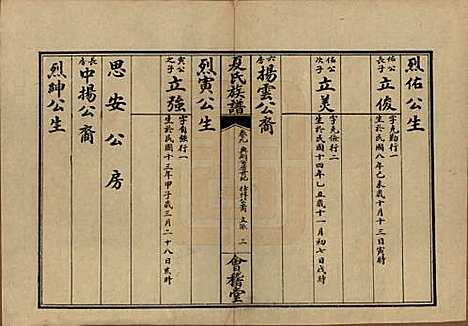 烈佑公生
佑公長子
立俊
字克勤行一
生於民國八年己未十月十三日寅時
佑公次子
立美
字克儉行二
生於民國十四年乙丑歲十一月初七日戌時
六房
揚雲公裔
夏氏族譜
卷九
三
會稽堂
烈寅公生
寅公之子
立強
字自強行一
生於民國十三年甲子歲三月二十八日亥時
思安公房
長房
中揚公裔
烈紳公生